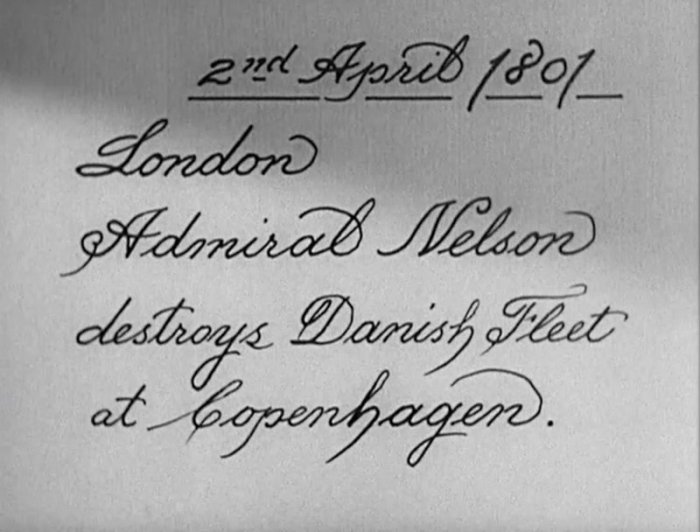 2nd April 1801
London
Admiral Nelson
destroys Danish Fleet
at Copenhagen.